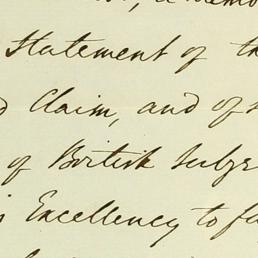 Statement of th
Claim, and of
of British Subje
Excellency to fa